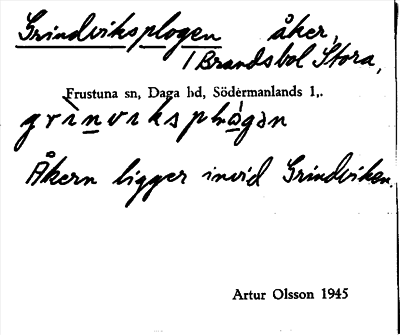 Grindviksplogen åker,
/ Brandsbol Stora,
Frustuna sn, Daga hd, Södermanlands l,.
Åkern ligger invid Grindviken.
Artur Olsson 1945